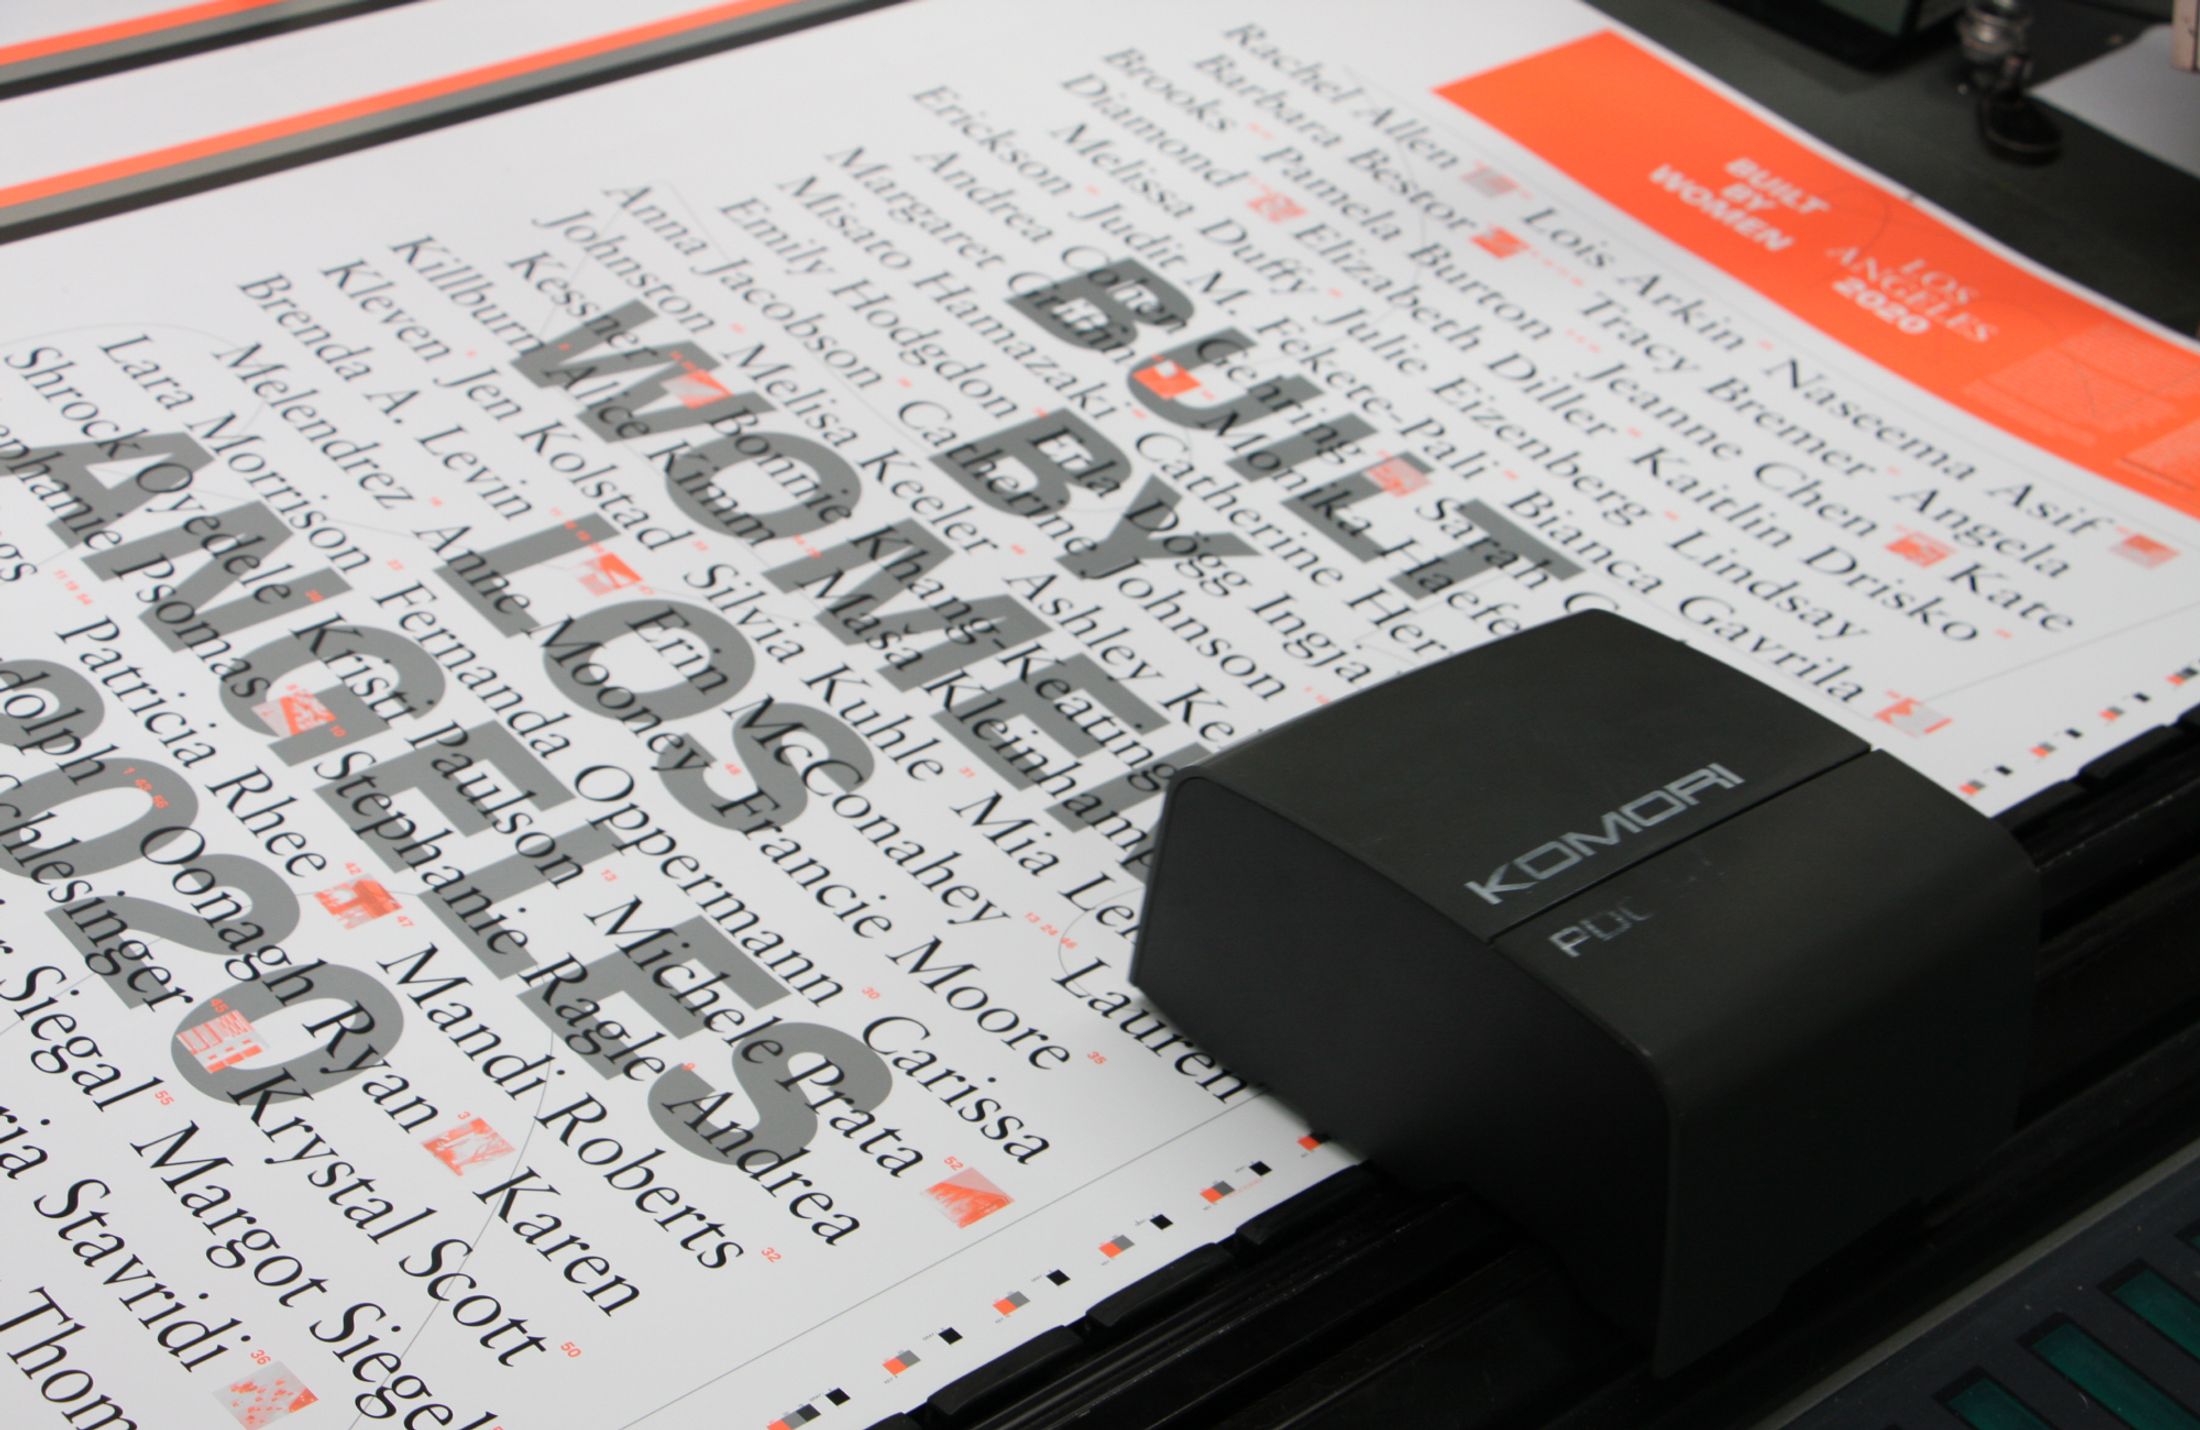 BUILT
BY
WOMEN
LOS
ANGELES
2020
Rachel Allen Lois Arkin Naseema Asif
Barbara Bestor Tracy Bremer Angela
Brooks Pamela Burton Jeanne Chen Kate
Diamond Elizabeth Diller Kaitlin Drisko
Melissa Duffy Julie Eizenberg Lindsay
Erickson Judit M. Fekete-Pali Bianca Gavrila
Andrea Cohen Gehring Sarah
Margaret Griffin Monika Haefe
Misato Hamazaki Catherine Her
Emily Hodgdon Erla Dögg Ingja
Anna Jacobson Catherine Johnson
Johnston Melisa Keeler Ashley Ke
Kessner Bonnie Khang Keating
Killburn Alice Kimm Maša Kleinham
Kleven Jen Kolstad Silvia Kuhle 31 Mia Le
Brenda A. Levin Erin McConahey 13 24 46 Lauren
Melendrez Anne Mooney 48 Francie Moore 35
Lara Morrison Fernanda Oppermann 30 Carissa
Shrock Oyedele Kristi Paulson 13 Michele Prata 52
Stephanie Ragle Andrea
Psomas 10
Patricia Rhee 42 47 Mandi Roberts 32
dolph 1 43 56 Oonagh Ryan 3 Karen
chlesinger 45 Krystal Scott 50
Siegal 55 Margot Siegel
ria Stavridi 36
Thom
BUILT
BY
WOMEN
LOS
ANGELES
2020
KOMORI